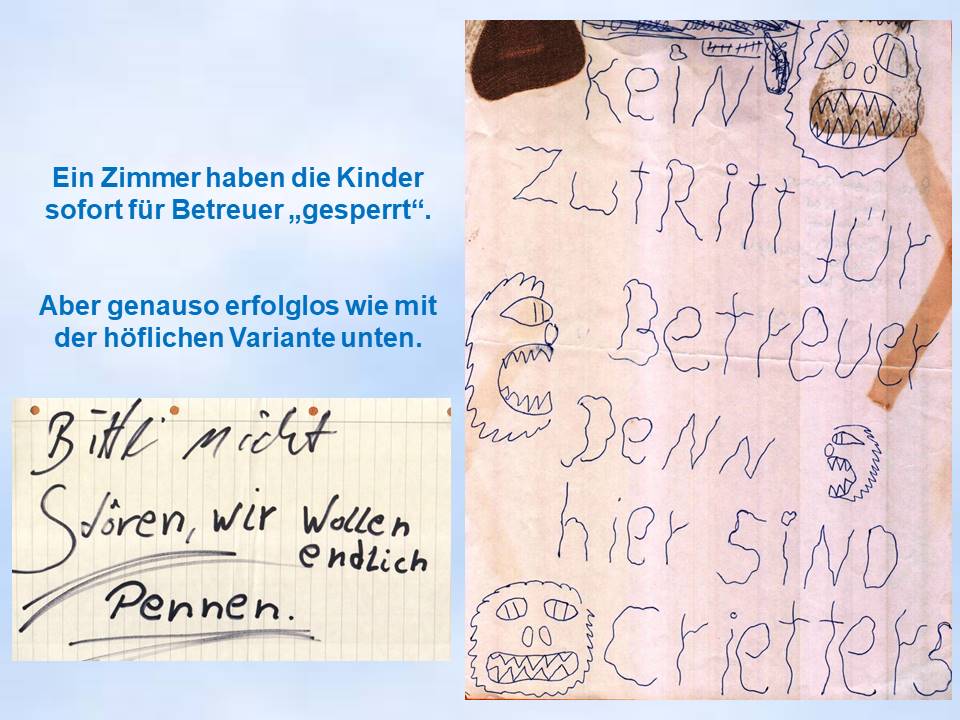 Ein Zimmer haben die Kinder
sofort für Betreuer „gesperrt“.
Aber genauso erfolglos wie mit
der höflichen Variante unten.
Bitte nicht
Stören, wir wollen
endlich
Pennen.
Kein
Zutritt für
Betreuer
Denn
hier sind
Crietters